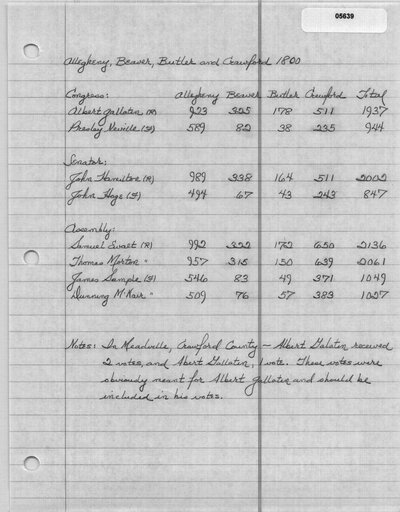 05639
Allegheny, Beaver, Butler and Crawford 1800
Congress: Allegheny Beaver Butler Crawford Total
Albert Gallatin (R) 923 325 178 511 1937
Presley Neville (F) 589 82 38 235 944
Senator:
John Hamilton (R) 989 338 164 511 2002
John Hoge (F) 494 67 43 243 847
Assembly:
Samuel Ewalt (R) 992 322 172 650 2136
Thomas Morton " 957 315 150 639 2061
James Sample (F) 546 83 49 371 1049
Dunning McNair " 509 76 57 383 1027
Notes: In Meadville, Crawford County - Albert Galatin received
2 votes, and Abert Gallatin, 1 vote. These votes were
obviously meant for Albert Gallatin and should be
included in his votes.